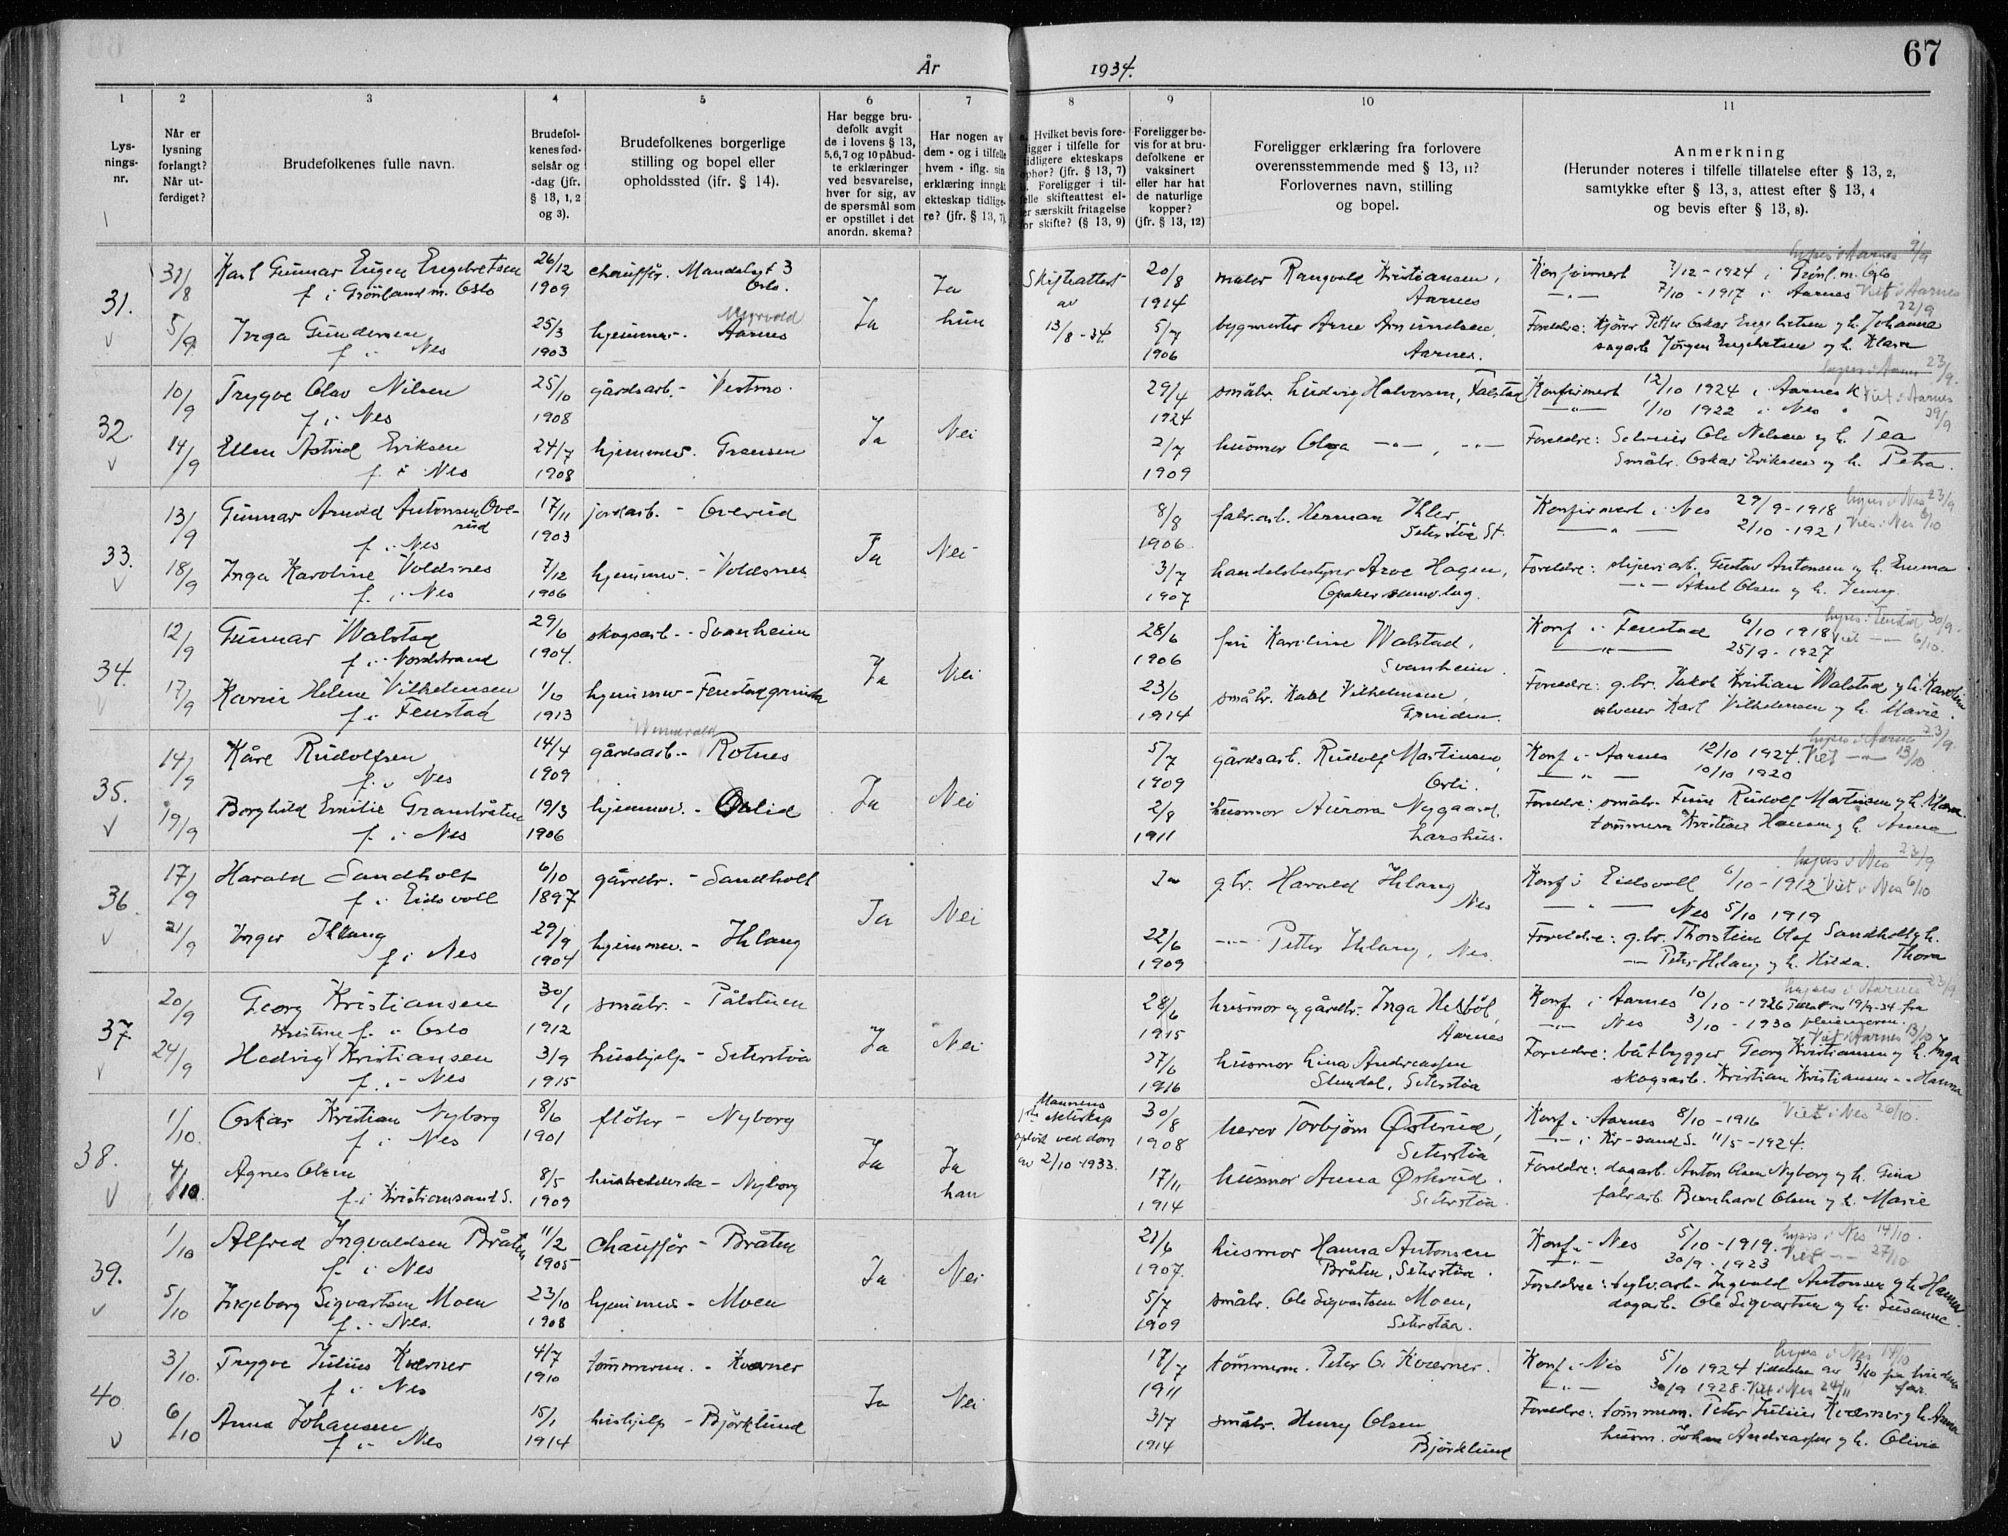 67
År 1934.
1 2 3 4 5 6 7 8 9 10 11
Lys-
nings-
nr.
Når er
lysning
forlangt?
Når ut-
ferdiget?
Brudefolkenes fulle navn.
Brudefol-
kenes fød-
selsår og
-dag (jfr.
§ 13, 1, 2
og 3).
Brudefolkenes borgerlige
stilling og bopel eller
opholdssted (jfr. § 14).
Har begge bru-
defolk avgit
de i lovens § 13,
5, 6, 7 og 10 påbud-
te erklæringer
ved besvarelse,
hver for sig, av
de spørsmål som
er opstillet i det
anordn. skema?
Har nogen av
dem - og i tilfelle
hvem - iflg. sin
erklæring inngåt
ekteskap tidlige-
re? (jfr. § 13, 7).
Hvilket bevis fore-
ligger i tilfelle for
tidligere ekteskaps
ophør? (jfr. § 13, 7)
Foreligger i til-
felle skifteattest el-
er særskilt fritagelse
for skifte? (§ 13, 9)
Foreligger be-
vis for at bru-
defolkene er
vaksinert
eller har hat
de naturlige
kopper?
(jfr. § 13, 12)
Foreligger erklæring fra forlovere
overensstemmende med § 13, 11?
Forlovernes navn, stilling
og bopel.
Anmerkning
(Herunder noteres i tilfelle tillatelse efter § 13, 2,
samtykke efter § 13, 3, attest efter § 13, 4
og bevis efter § 13, 8).
lyses i Aarnes 9/9
31. 31/8 Karl Gunnar Eugen Engebretsen 26/12 chauffør. 3 Skifteattest 20/8 maler Rangvald Kristiansen, Konfirmert 7/12 - 1924 i Grønl. m. Oslo
f i Grønland m. Oslo 1909 Oslo. Ja Ja av 1914 Aarnes —"— 7/10 - 1917 i Aarnes Viet i Aarnes 22/9
5/9 Inga Gundersen 25/3 hjemmev. - Aarnes hun 13/8 - 34. 5/7 bygmester Arne Amundsen, Foreldre: kjører Petter Oskar Engebretsen og h. Johanna
f. i Nes 1903 1906 Aarnes. sagarb. Jørgen Engebretsen og h. Klara
lyses i Aarnes 23/9.
32. 10/9 Trygve Olav Nilsen 25/10 gårdsarb. - Vestmo. 29/4 småbr. Ludvig Halvorsen, Falstad Konfirmert 12/10 1924 i Aarnes K Viet i Aarnes
f i Nes 1908 Ja Nei 1924 —"— 1/10 1922 i Nes " 29/9
14/9 Ellen Astrid Eriksen 24/7 hjemmev. Grensen 2/7 husmor Olga —"—, —"— Foreldre: Ole Nilsen og h. Tea
f i Nes 1908 1909 Småbr. Oskar Eriksen og h. Petra.
33. 13/9 Gunnar Arnold Antonsen Ove- 17/11 jordarb. - Overud 8/8 fabr.arb. Herman Ihler Konfirmert i Nes 29/9 - 1918 lyses i Nes 23/9
rud
f. i Nes 1903 Ja Nei 1906 Seterstøa St. —"— 2/10 - 1921 Viet i Nes 6/10
18/9 Inga Karoline Voldsnes 7/12 hjemmev. - Voldsnes 3/7 handelsbestyrer Arve Hagen, Foreldre: sliperiarb. Gustav Antonsen og h. Emma
f. i Nes 1906 1907 Opaker samvlag. —"— Aksel Olsen og h. Jenny.
34. 12/9 Gunnar Walstad 29/6 skogsarb. - Svanheim 28/6 fru Karoline Walstad, Konf i Fenstad 6/10 1918 lyses i Fenstad 30/9.
f. i Nordstrand 1904. Ja Nei 1906 Svanheim. —"— 25/9 - 1927 Viet —"— 6/10.
17/9 Karin Helene Vilhelmsen 1/6 hjemmev - Fenstadgrinda 23/6 småbr. Karl Vilhelmsen, Foreldre: g.br. Jakob Kristian Walstad og h. Karoline
f. i Fenstad 1913 1914 Grinden. Karl Vilhelmsen og h. Marie.
lyses i Aarnes 23/9.
35. 14/9 Kåre Rudolfsen 14/4 gårdsarb. - Rotnes 5/7 gårdsarb. Rudolf Martinsen, Konf i Aarnes 12/10 1924. Viet —"— 13/10.
f. i Nes 1909 Ja Nei 1909 Orli. —"— 10/10 1920
19/9 Borghild Emilie Granbråten 19/3 hjemmev. - Orlid 2/8 husmor Aurora Nygaard, Foreldre: småbr. Finn Rudolf Martinsen og h. Klara
f. i Nes 1906 1911 Larshus. tømmerm Kristian Hansen og h. Anna
lyses i Nes 23/9
36. 17/9 Harald Sandholt 6/10 gårdbr. - Sandholt Ja g.br. Harald Ihlang Konf i Eidsvoll 6/10 - 1912 Viet i Nes 6/10
f. i Eidsvoll 1897 Ja Nei Nes —"— Nes 5/10 1919
21/9 Inger Ihlang 29/9 hjemmev. - Ihlang 22/6 —"— Petter Ihlang, Nes. Foreldre: g.br. Thorstein Olaf Sandholt og h.
f. i Nes 1904 1909 —"— Peter Ihlang og h. Hilda. Thora
lyses i Aarnes 23/9
37. 20/9 Georg Kristiansen 30/1 småbr. - Pålstuen 28/6 husmor og gårdbr. Inga Hesbøl, Konf i Aarnes 10/10 - 1926 19/9-34 fra
Kristine f. i Oslo 1912 Ja Nei 1915 Aarnes —"— Nes 3/10 - 1930
24/9 Hedvig Kristiansen 3/9 hushjelp - Seterstøa 27/6 husmor Lina Andreassen Viet i Aarnes 13/10 Foreldre: båtbygger Georg Kristiansen og h. Inga
f. i Nes 1915 1916 Seterstøa skogsarb. Kristian Kristiansen - Hanna
38. 1/10. Oskar Kristian Nyborg 8/6 fløter - Nyborg Mannens ekteskap 30/8 herr Torbjørn Østerud, Konf i Aarnes 8/10 - 1916 Viet i Nes 20/10.
f. i Nes 1901 Ja Ja opløst ved dom 1908 Seterstøa —"— i Kr-sand S. 11/5 - 1924.
4/10. Agnes Olsen 8/5 husholderske - Nyborg han av 2/10 - 1933. 17/11 husmor Anna Østerud Foreldre: dagarb. Anton Olsen Nyborg og h. Gina
f. i Kristiansand S. 1909 1914 Seterstøa. fabr.arb. Bernhard Olsen og h. Marie
39. 1/10 Alfred Ingvaldsen Bråten 11/2 chauffør - Bråten 21/6 husmor Hanna Antonsen Konf i Nes 5/10 - 1919. lyses i Nes 14/10.
f. i Nes 1905 Ja Nei 1907. Bråten, Seterstøa. —"— 30/9 - 1923 Viet —"— 27/10
5/10 Ingeborg Sigvartsen Moen 23/10 hjemmev - Moen 5/7 småbr. Ole Sigvartsen Moen, Foreldre: Ingvald Antonsen og h. Hanna
f. i Nes. 1908 1909 Seterstøa. dagarb. Ole Sigvartsen og h. Susanne.
lyses i Nes 14/10
40. 3/10. Trygve Julius Kværner 4/7 tømmerm. - Kværner 17/7 tømmerm. Peter O. Kværner. Konf i Nes 5/10 1924 tillatelse av 3/10 fra brudens
f i Nes 1910 Ja Nei 1911 —"— 30/9 1928. Viet i Nes 24/11 far.
6/10 Anna Johansen 15/1 hushjelp - Bjørklund 3/7 småbr. Henry Olsen Foreldre: tømmerm. Peter Julius Kværner og h. Anna
f. i Nes 1914 1914 Bjørklund husm. Johan Andreassen og h. Olivia